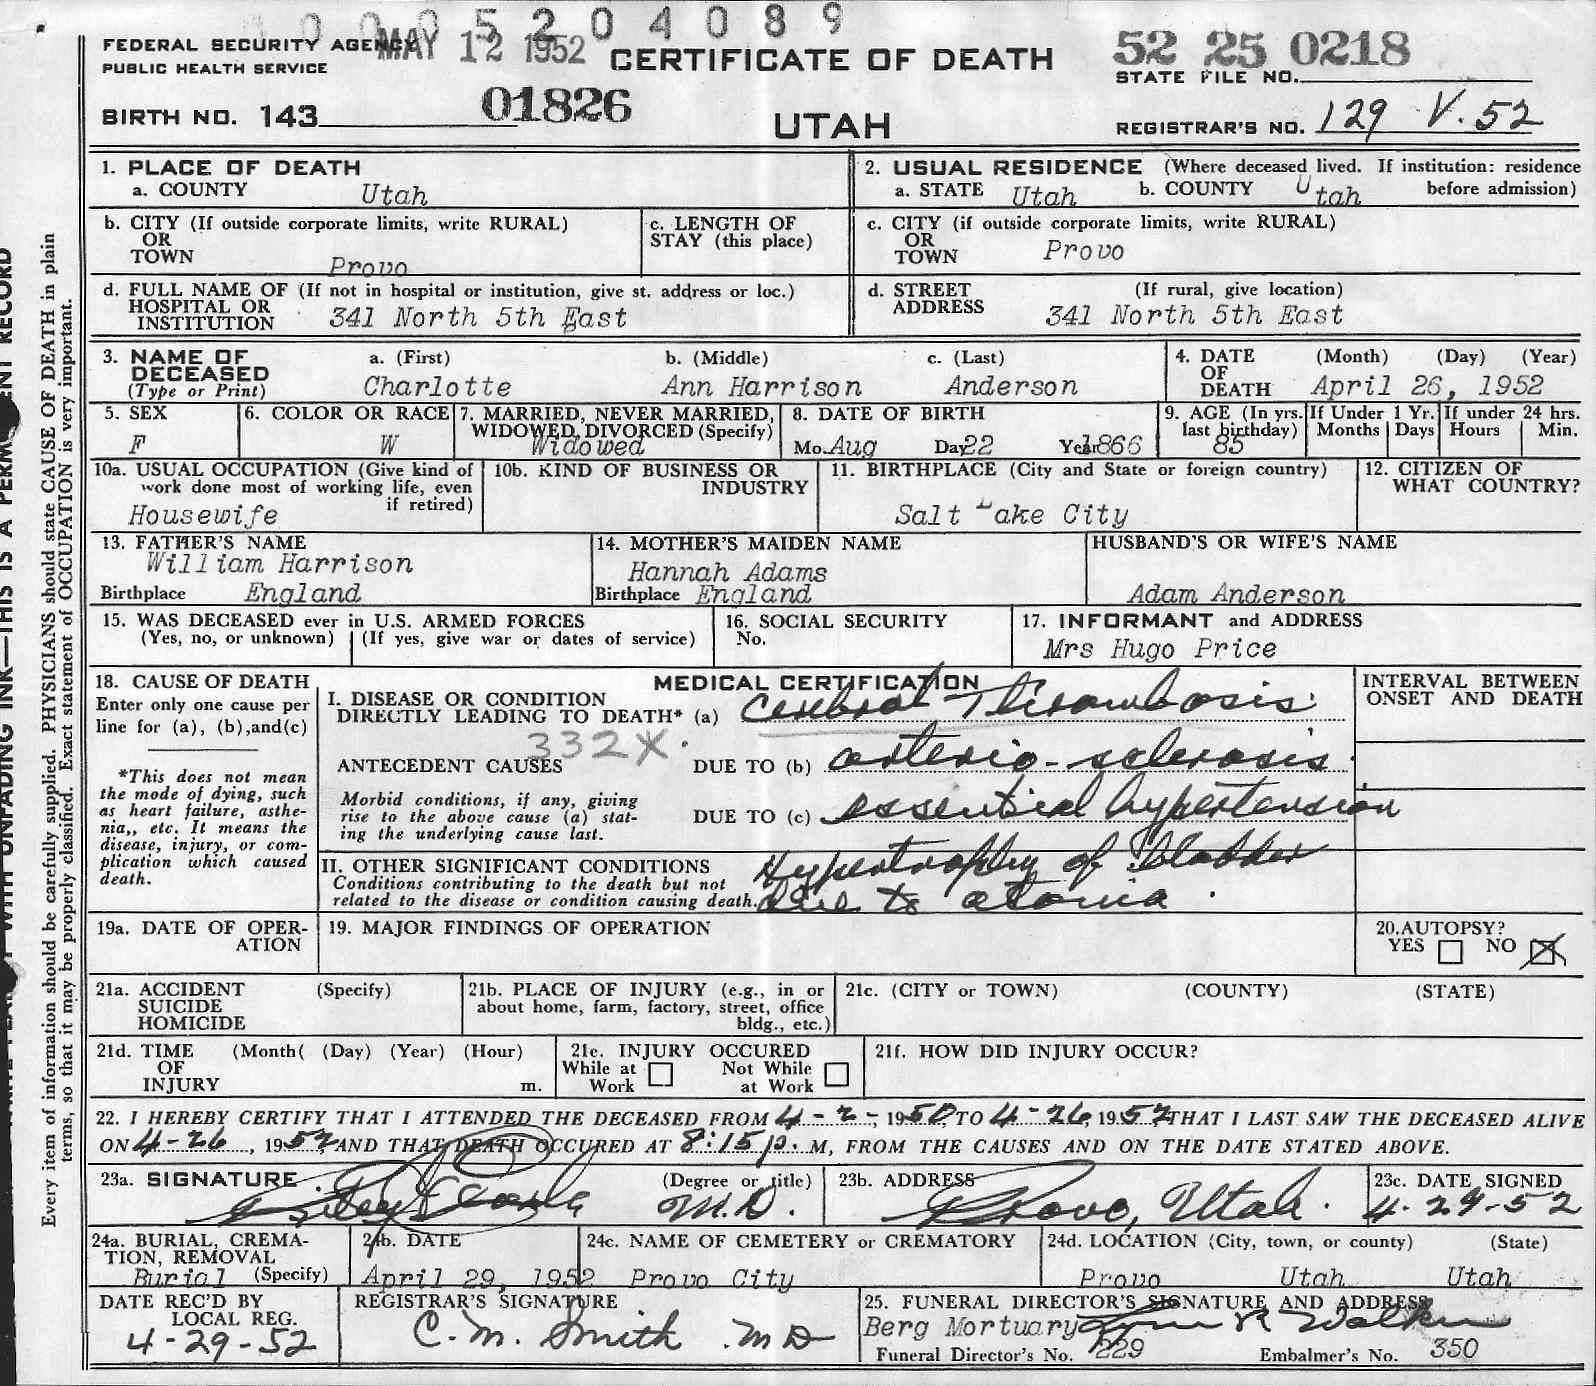 0 0 0 5 2 0 4 0 8 9
FEDERAL SECURITY AGENCY MAY 12 1952 CERTIFICATE OF DEATH 52 25 0218
PUBLIC HEALTH SERVICE STATE FILE NO.
BIRTH NO. 143 01826 UTAH REGISTRAR'S NO. 129 V. 52
1. PLACE OF DEATH 2. USUAL RESIDENCE (Where deceased lived. If institution: residence
a. COUNTY Utah a. STATE Utah b. COUNTY Utah before admission)
b. CITY (If outside corporate limits, write RURAL) c. LENGTH OF c. CITY (if outside corporate limits, write RURAL)
OR STAY (this place) OR
TOWN Provo TOWN Provo
d. FULL NAME OF (If not in hospital or institution, give st. address or loc.) d. STREET (If rural, give location)
HOSPITAL OR ADDRESS
INSTITUTION 341 North 5th East 341 North 5th East
3. NAME OF a. (First) b. (Middle) c. (Last) 4. DATE (Month) (Day) (Year)
DECEASED OF
(Type or Print) Charlotte Ann Harrison Anderson DEATH April 26, 1952
5. SEX 6. COLOR OR RACE 7. MARRIED, NEVER MARRIED, 8. DATE OF BIRTH 9. AGE (In yrs. If Under 1 Yr. If under 24 hrs.
WIDOWED, DIVORCED (Specify) last birthday) Months Days Hours Min.
F W Widowed Mo. Aug Day 22 Year 1866 85
10a. USUAL OCCUPATION (Give kind of 10b. KIND OF BUSINESS OR 11. BIRTHPLACE (City and State or foreign country) 12. CITIZEN OF
work done most of working life, even INDUSTRY WHAT COUNTRY?
if retired)
Housewife Salt Lake City
13. FATHER'S NAME 14. MOTHER'S MAIDEN NAME HUSBAND'S OR WIFE'S NAME
William Harrison Hannah Adams
Birthplace England Birthplace England Adam Anderson
15. WAS DECEASED ever in U.S. ARMED FORCES 16. SOCIAL SECURITY 17. INFORMANT and ADDRESS
(Yes, no, or unknown) (If yes, give war or dates of service) No. Mrs Hugo Price
18. CAUSE OF DEATH MEDICAL CERTIFICATION INTERVAL BETWEEN
Enter only one cause per I. DISEASE OR CONDITION ONSET AND DEATH
line for (a), (b),and(c) DIRECTLY LEADING TO DEATH* (a) Cerebral Thrombosis
332X
ANTECEDENT CAUSES DUE TO (b) arterio-sclerosis
*This does not mean
the mode of dying, such Morbid conditions, if any, giving
as heart failure, asthe- rise to the above cause (a) stat- DUE TO (c) essential hypertension
nia,, etc. It means the ing the underlying cause last.
disease, injury, or com-
plication which caused II. OTHER SIGNIFICANT CONDITIONS Hypertrophy of bladder
death. Conditions contributing to the death but not
related to the disease or condition causing death. due to atonia.
19a. DATE OF OPER- 19. MAJOR FINDINGS OF OPERATION 20.AUTOPSY?
ATION YES NO X
21a. ACCIDENT (Specify) 21b. PLACE OF INJURY (e.g., in or 21c. (CITY or TOWN) (COUNTY) (STATE)
SUICIDE about home, farm, factory, street, office
HOMICIDE bldg., etc.)
21d. TIME (Month( (Day) (Year) (Hour) 21e. INJURY OCCURED 21f. HOW DID INJURY OCCUR?
OF While at Not While
INJURY m. Work at Work
22. I HEREBY CERTIFY THAT I ATTENDED THE DECEASED FROM 4-2-, 1950, TO 4-26, 1952 THAT I LAST SAW THE DECEASED ALIVE
ON 4-26, 1952, AND THAT DEATH OCCURED AT 8:15 p. M, FROM THE CAUSES AND ON THE DATE STATED ABOVE.
23a. SIGNATURE (Degree or title) 23b. ADDRESS 23c. DATE SIGNED
M.D. Provo, Utah. 4-29-52
24a. BURIAL, CREMA- 24b. DATE 24c. NAME OF CEMETERY or CREMATORY 24d. LOCATION (City, town, or county) (State)
TION, REMOVAL
Burial (Specify) April 29, 1952 Provo City Provo Utah Utah
DATE REC'D BY REGISTRAR'S SIGNATURE 25. FUNERAL DIRECTOR'S SIGNATURE AND ADDRESS
LOCAL REG. Berg Mortuary Lynn R Walker
4-29-52 C. M. Smith MD Funeral Director's No. 229 Embalmer's No. 350
Every item of information should be carefully supplied. PHYSICIANS should state CAUSE OF DEATH in plain
terms, so that it may be properly classified. Exact statement of OCCUPATION is very important.
WITH UNFADING INK—THIS IS A PERMANENT RECORD